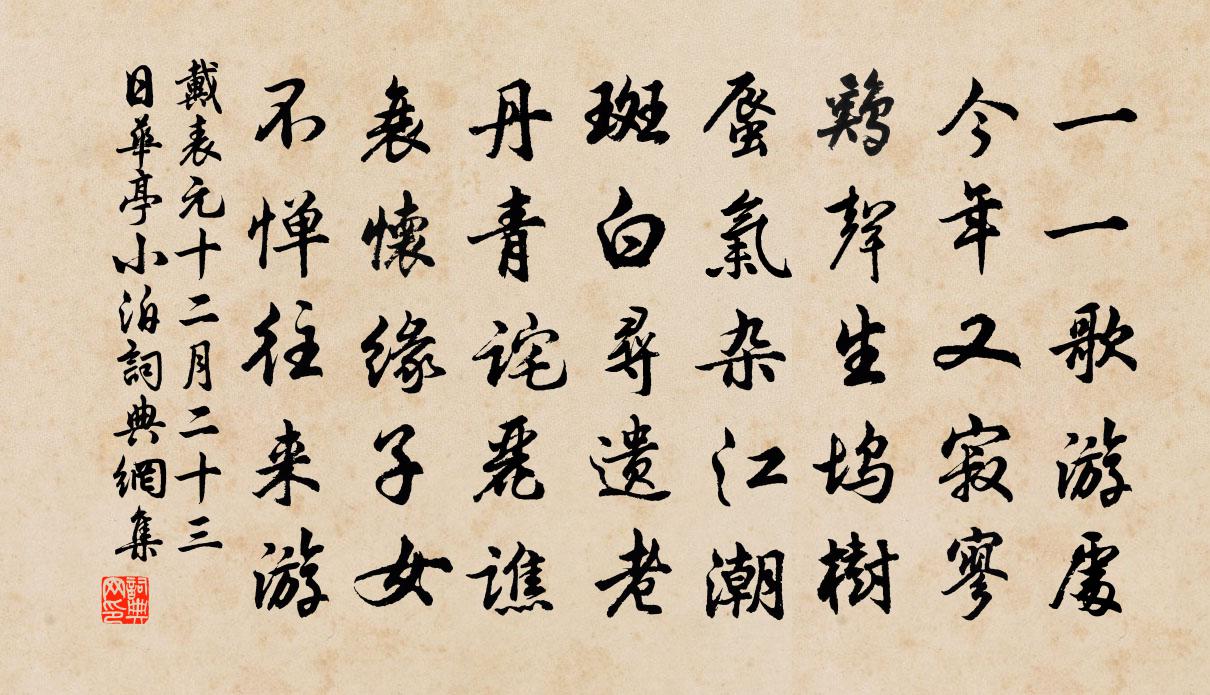 一一歌游處
今年又寂寥
鷄聲生塢樹
蜃氣杂江潮
斑白尋遗老
丹青詫麗譙
衰懷缘子女
不惮往来游
戴表元十二月二十三
日華亭小泊詞典網集
詞典网印